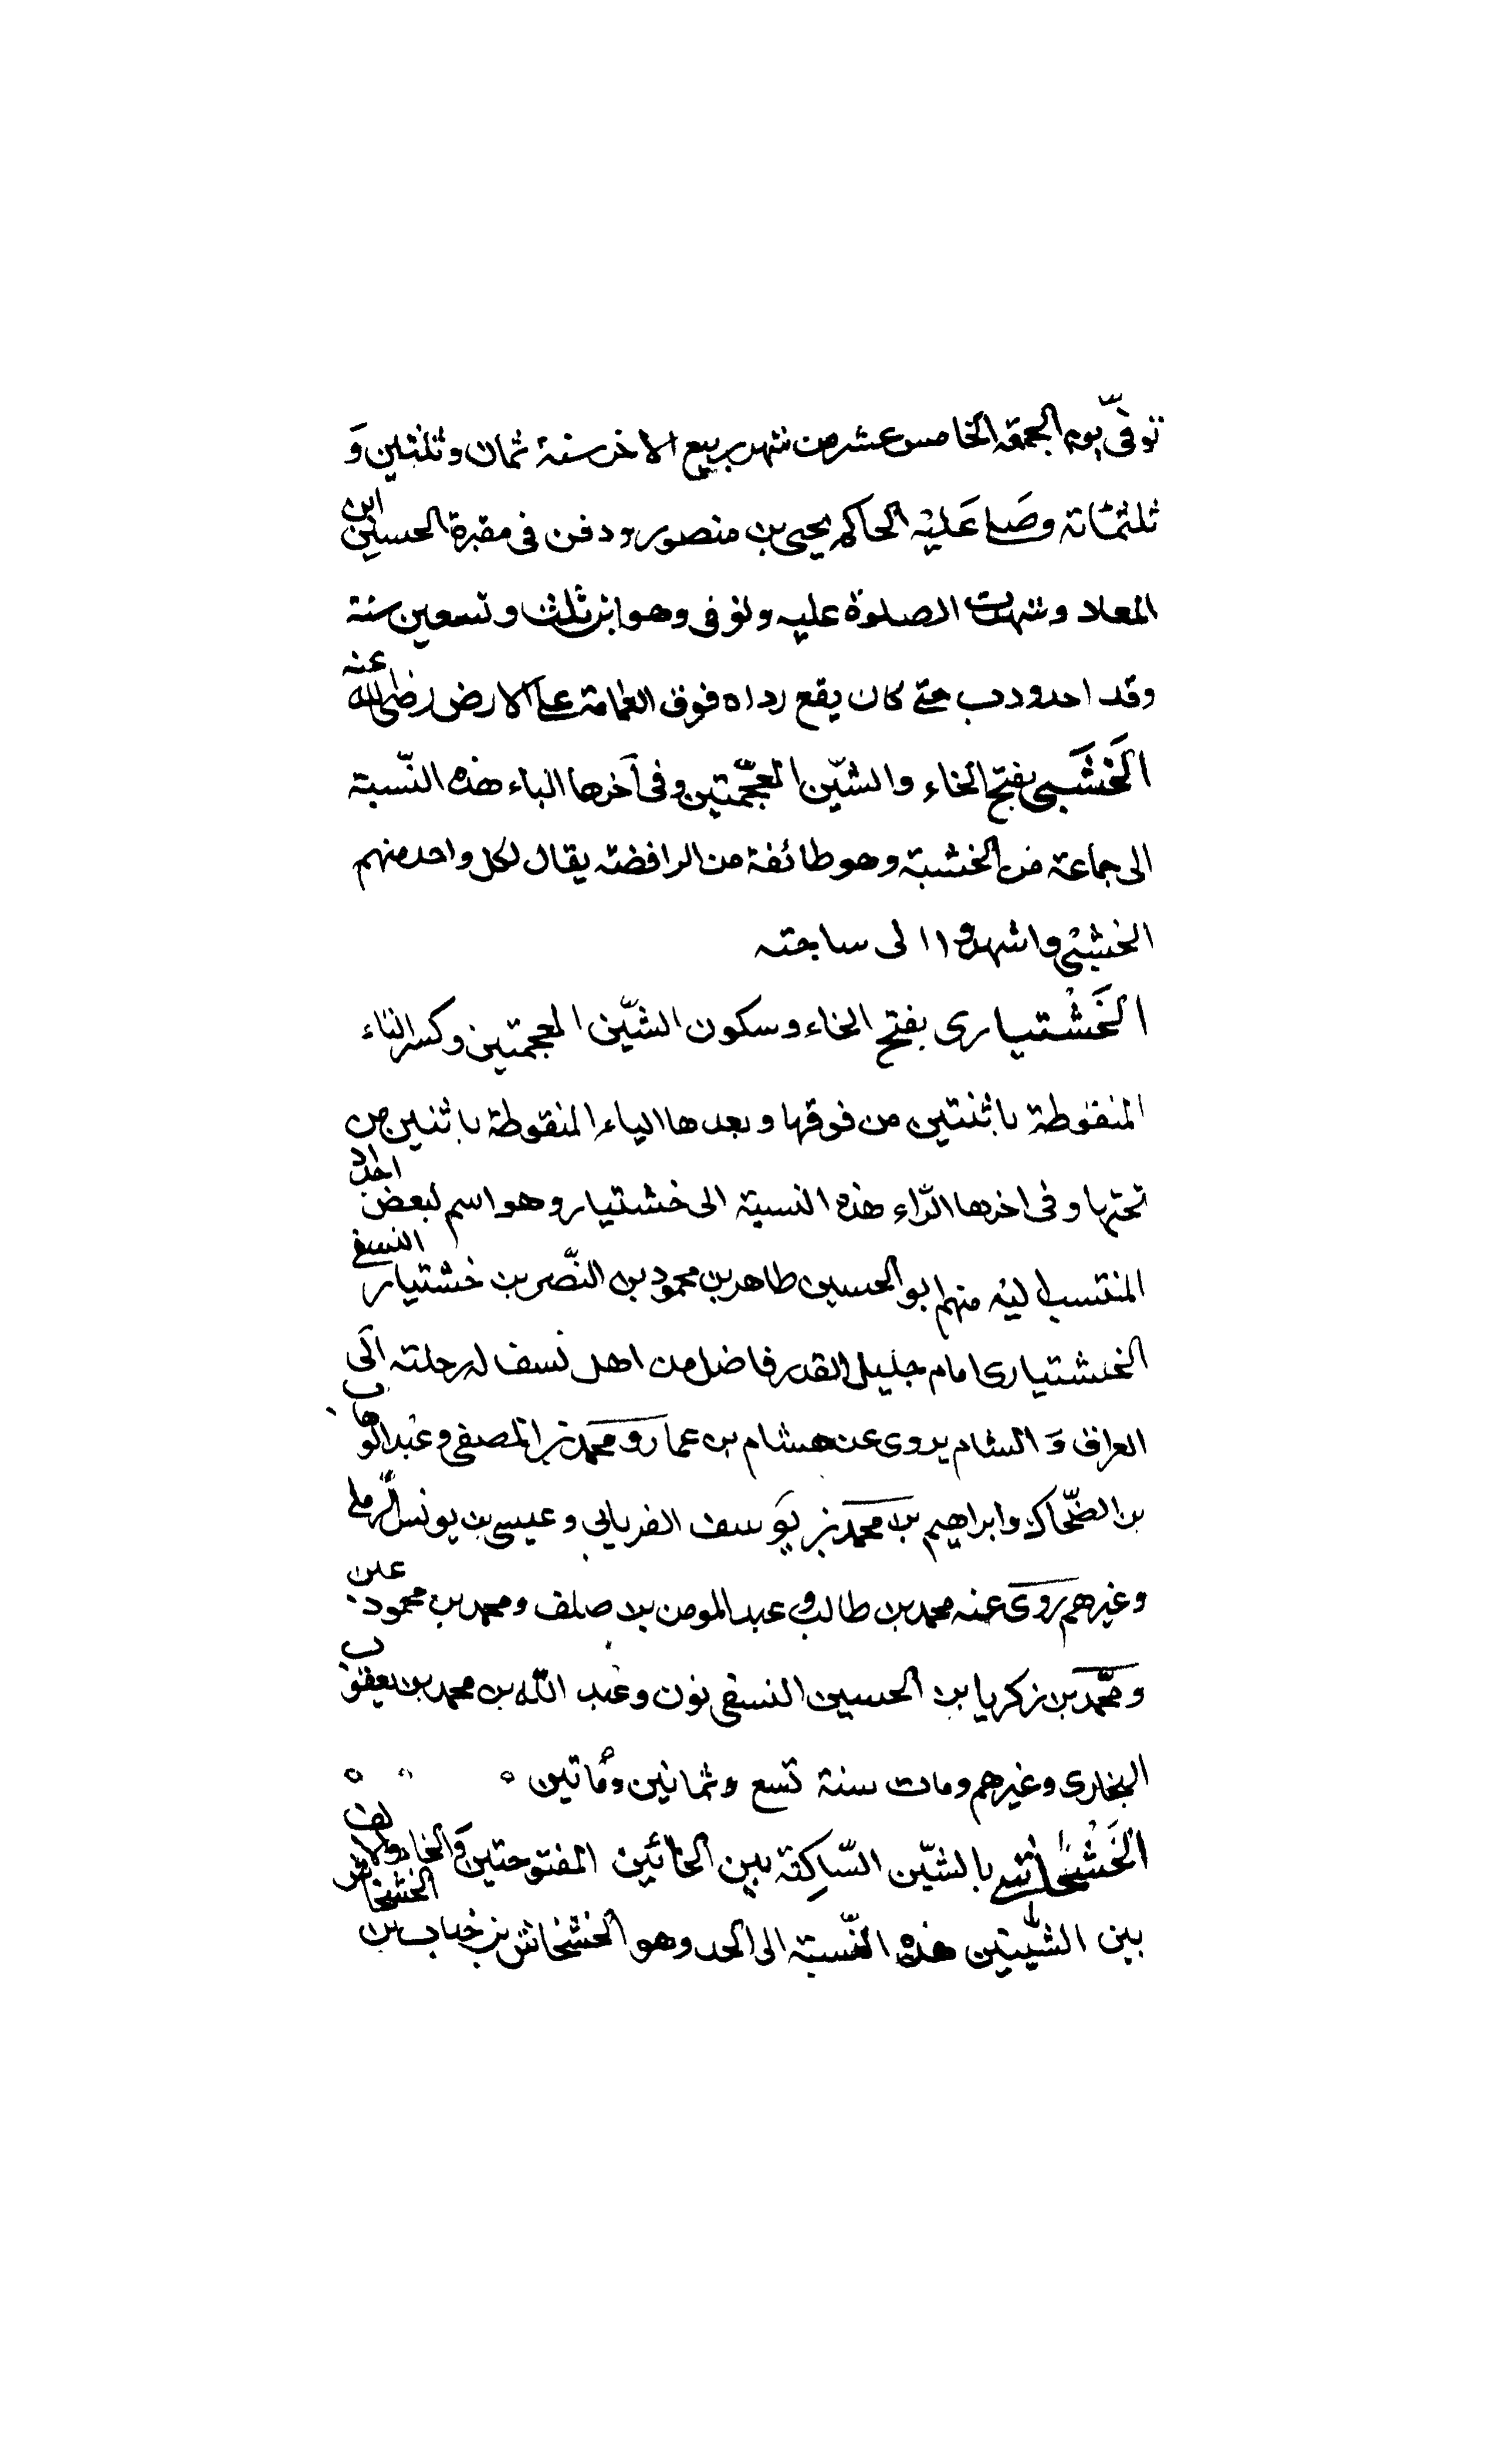 توفّي يوم الجمعة الخامس عشر من شهر ربيع الاخر سنة ثمان وثلثين وَ
ثلثمائة وصَلى عَليْه الحاكم يحيى بن منصور ودفن فى مقبرة الحسين ابن
المعاد وشهدت الصلوة عليه وتوفى وهو ابن ثلث وتسعين سنة
وقد احدودب حتى كان يقع رداه فوق العمامة على الارض رضى الله عنه
الخَشَبى بفتح الخاء والشّين المعجّمتين وفى آخرها الباء هذه النّسبة
الى جماعة من الخشبة وهو طائفة من الرافضة يقال لكل واحد منهم
الخشبىْ واشهدوا الى ساجته
الخَشْتيارى بفتح الخاء وسكون الشّين المعجمتين وكسر التاء
المنقوطة باثنتين من فوقها وبعدها الياء المنقوطة باثنين من
تحتها وفى اخرها الرّاء هذه النسبة الى خشتيار وهو اسم لبعض اجداد
المنتسب اليه منهم ابو الحسين طاهر بن محمود بن النّضر بن خشتيار النسفى
الخشتيارى امام جليل القدر فاضل من اهل نسف له رحلته الَى
العراق وَ الشام يروى عن هشام بن عمار ومحمد بن المصفى وعبد الوهاب
بن الضّحاك وابراهيم بن محمد بن يوسف الفريابي وعيسى بن يونس الرّملى
وغيرهم روَى عنه محمد بن طالب وعبد المومن بن خلف ومحمد بن محمود بن عنبر
ومحّمد بن زكريا بن الحسين النسفى نون وعبد اللّه بن محمد بن يعقوب
البخارى وغيرهم ومات سنة تسع وثمانين ومُاتين
الخَشْخاشى بالشّين السّاكِنة بين الخائين المفتوحتين وَالخاء والالف
بين الشيّنين هذه النّسبة الى الجد وهو الخشخاش بن خباب بن الخشخاش